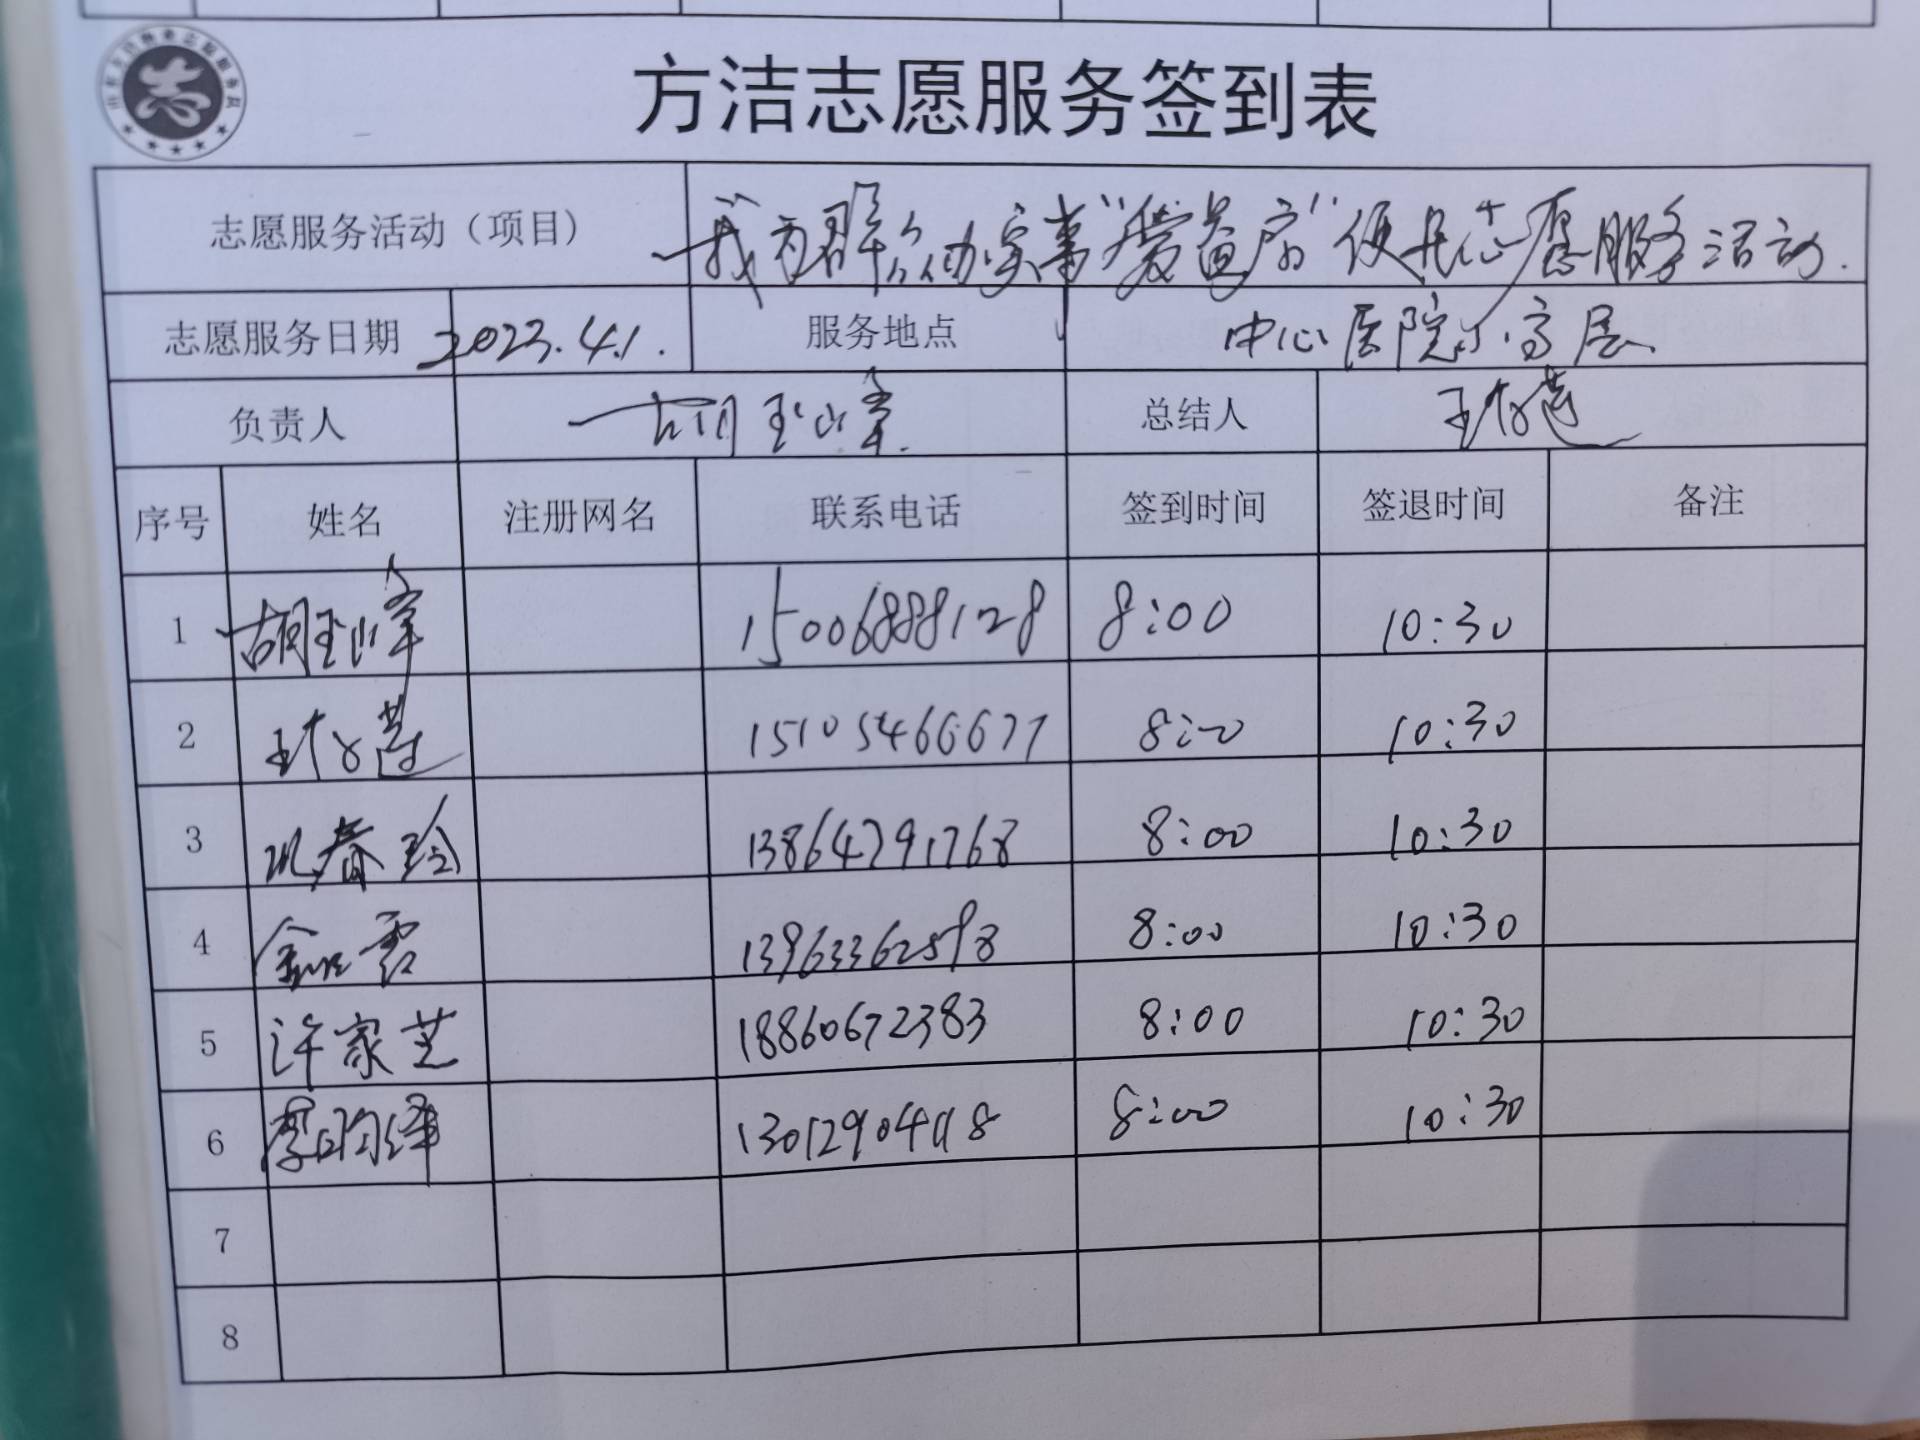 方洁志愿服务签到表
志愿服务活动（项目） 我为群众办实事"爱益府"便民志愿服务活动.
志愿服务日期 2023.4.1. 服务地点 中心医院小高层
负责人 胡玉峰 总结人
序号 姓名 注册网名 联系电话 签到时间 签退时间 备注
1 胡玉峰 15006888128 8:00 10:30
2 15105466677 8:00 10:30
3 巩春玲 13864791768 8:00 10:30
4 13963362598 8:00 10:30
5 许家芝 18860672383 8:00 10:30
6 8:00 10:30
7
8